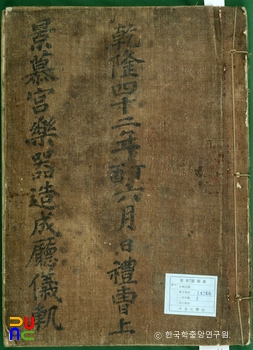 乾隆四十二年丁酉六月日禮曹上
景慕宮樂器造成廳儀軌
ⓒ 한국학중앙연구원